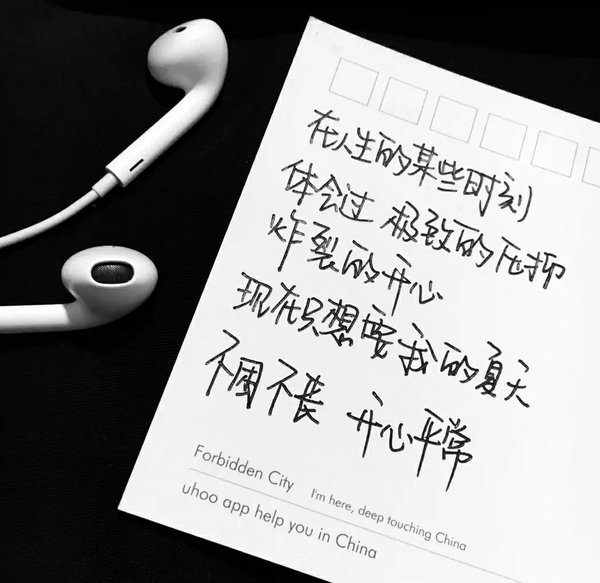 在人生的某些时刻
体会过 极致的压抑
炸裂的开心
现在只想要我的夏天
不困不丧 开心平常
Forbidden City I'm here, deep touching China
uhoo app help you in China